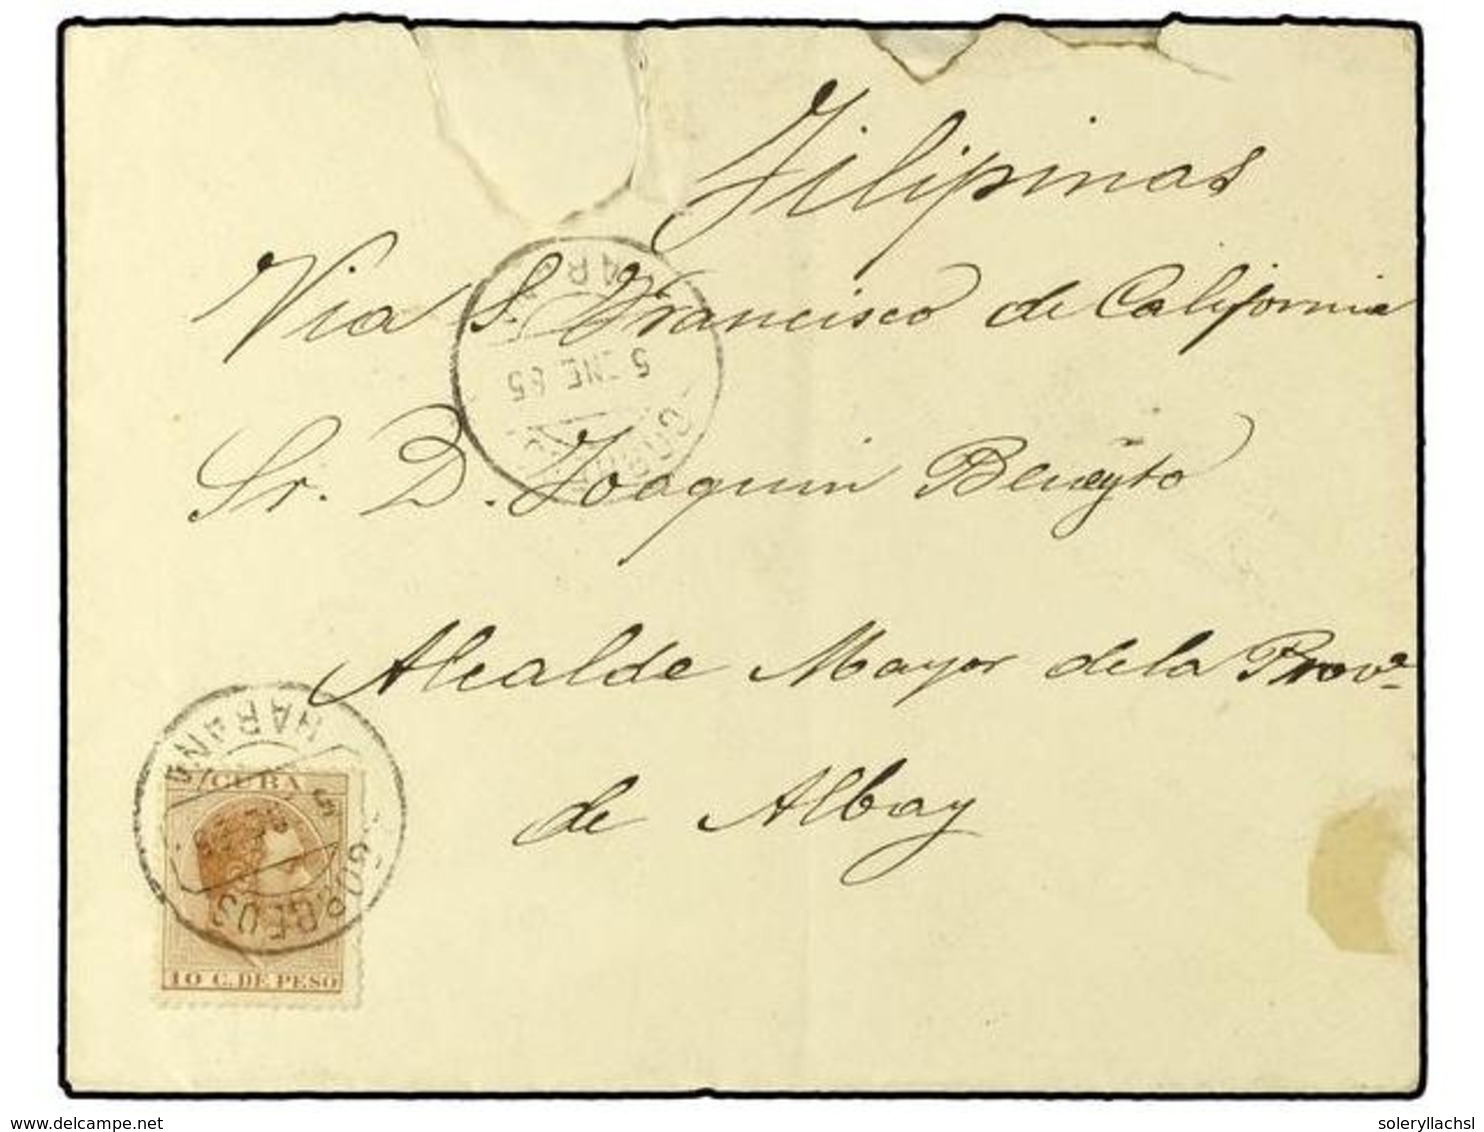 Filipinas
Via S. Francisco de California
5 ENE 85
Sr. D. Joaquin Beneyto
Alcalde Mayor de la Prova
de Albay
CORREOS
HABANA
CUBA
10 C. DE PESO
delcampe.net
soleryllachsl